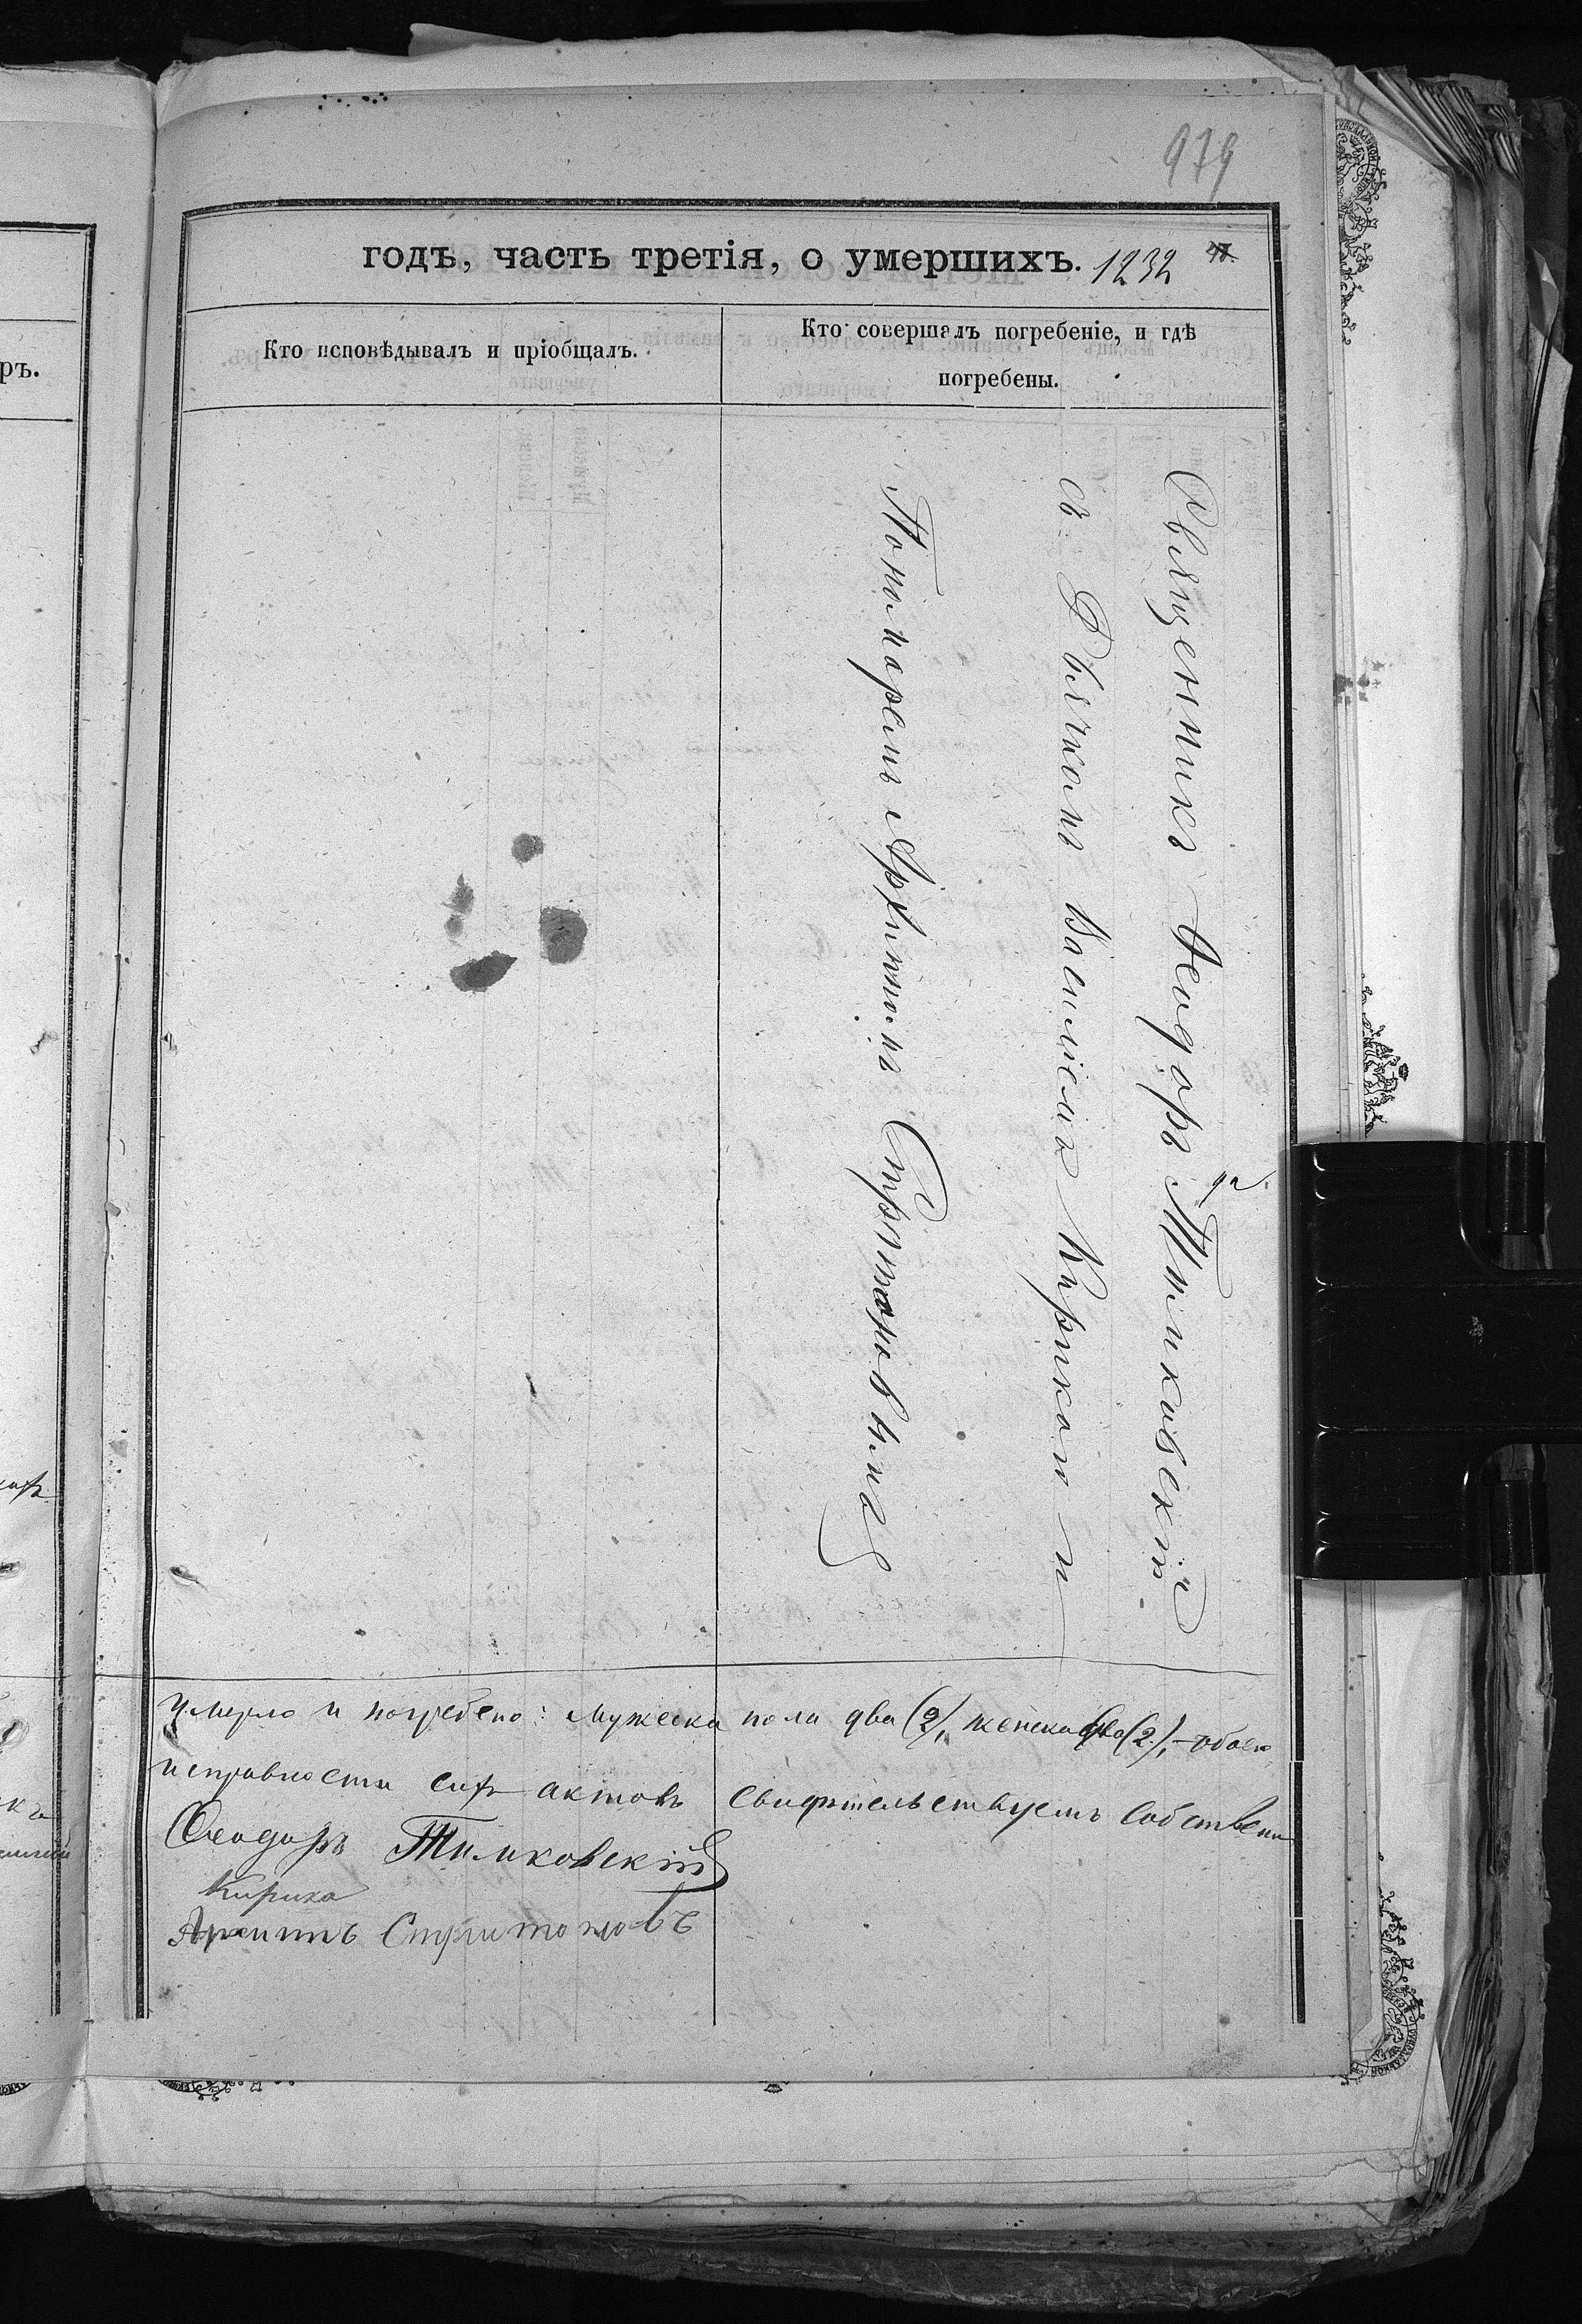 979
годъ, часть третія, о умершихъ. 1232
Кто исповѣдывалъ и пріобщалъ.
Кто совершалъ погребеніе, и гдѣ
погребены.
Священникъ Ѳеодоръ Тимковскій
съ Дьячкомъ Василіемъ Кирикою и
Пономаремъ Архиппомъ Стритоновымъ
Умерло и погребено: мужеска пола два (2), женска два (2), обоего
исправности сихъ актовъ свидѣтельствуемъ собственно
Ѳеодоръ Тимковскій
Кирика
Архиппъ Стритоновъ
ръ.